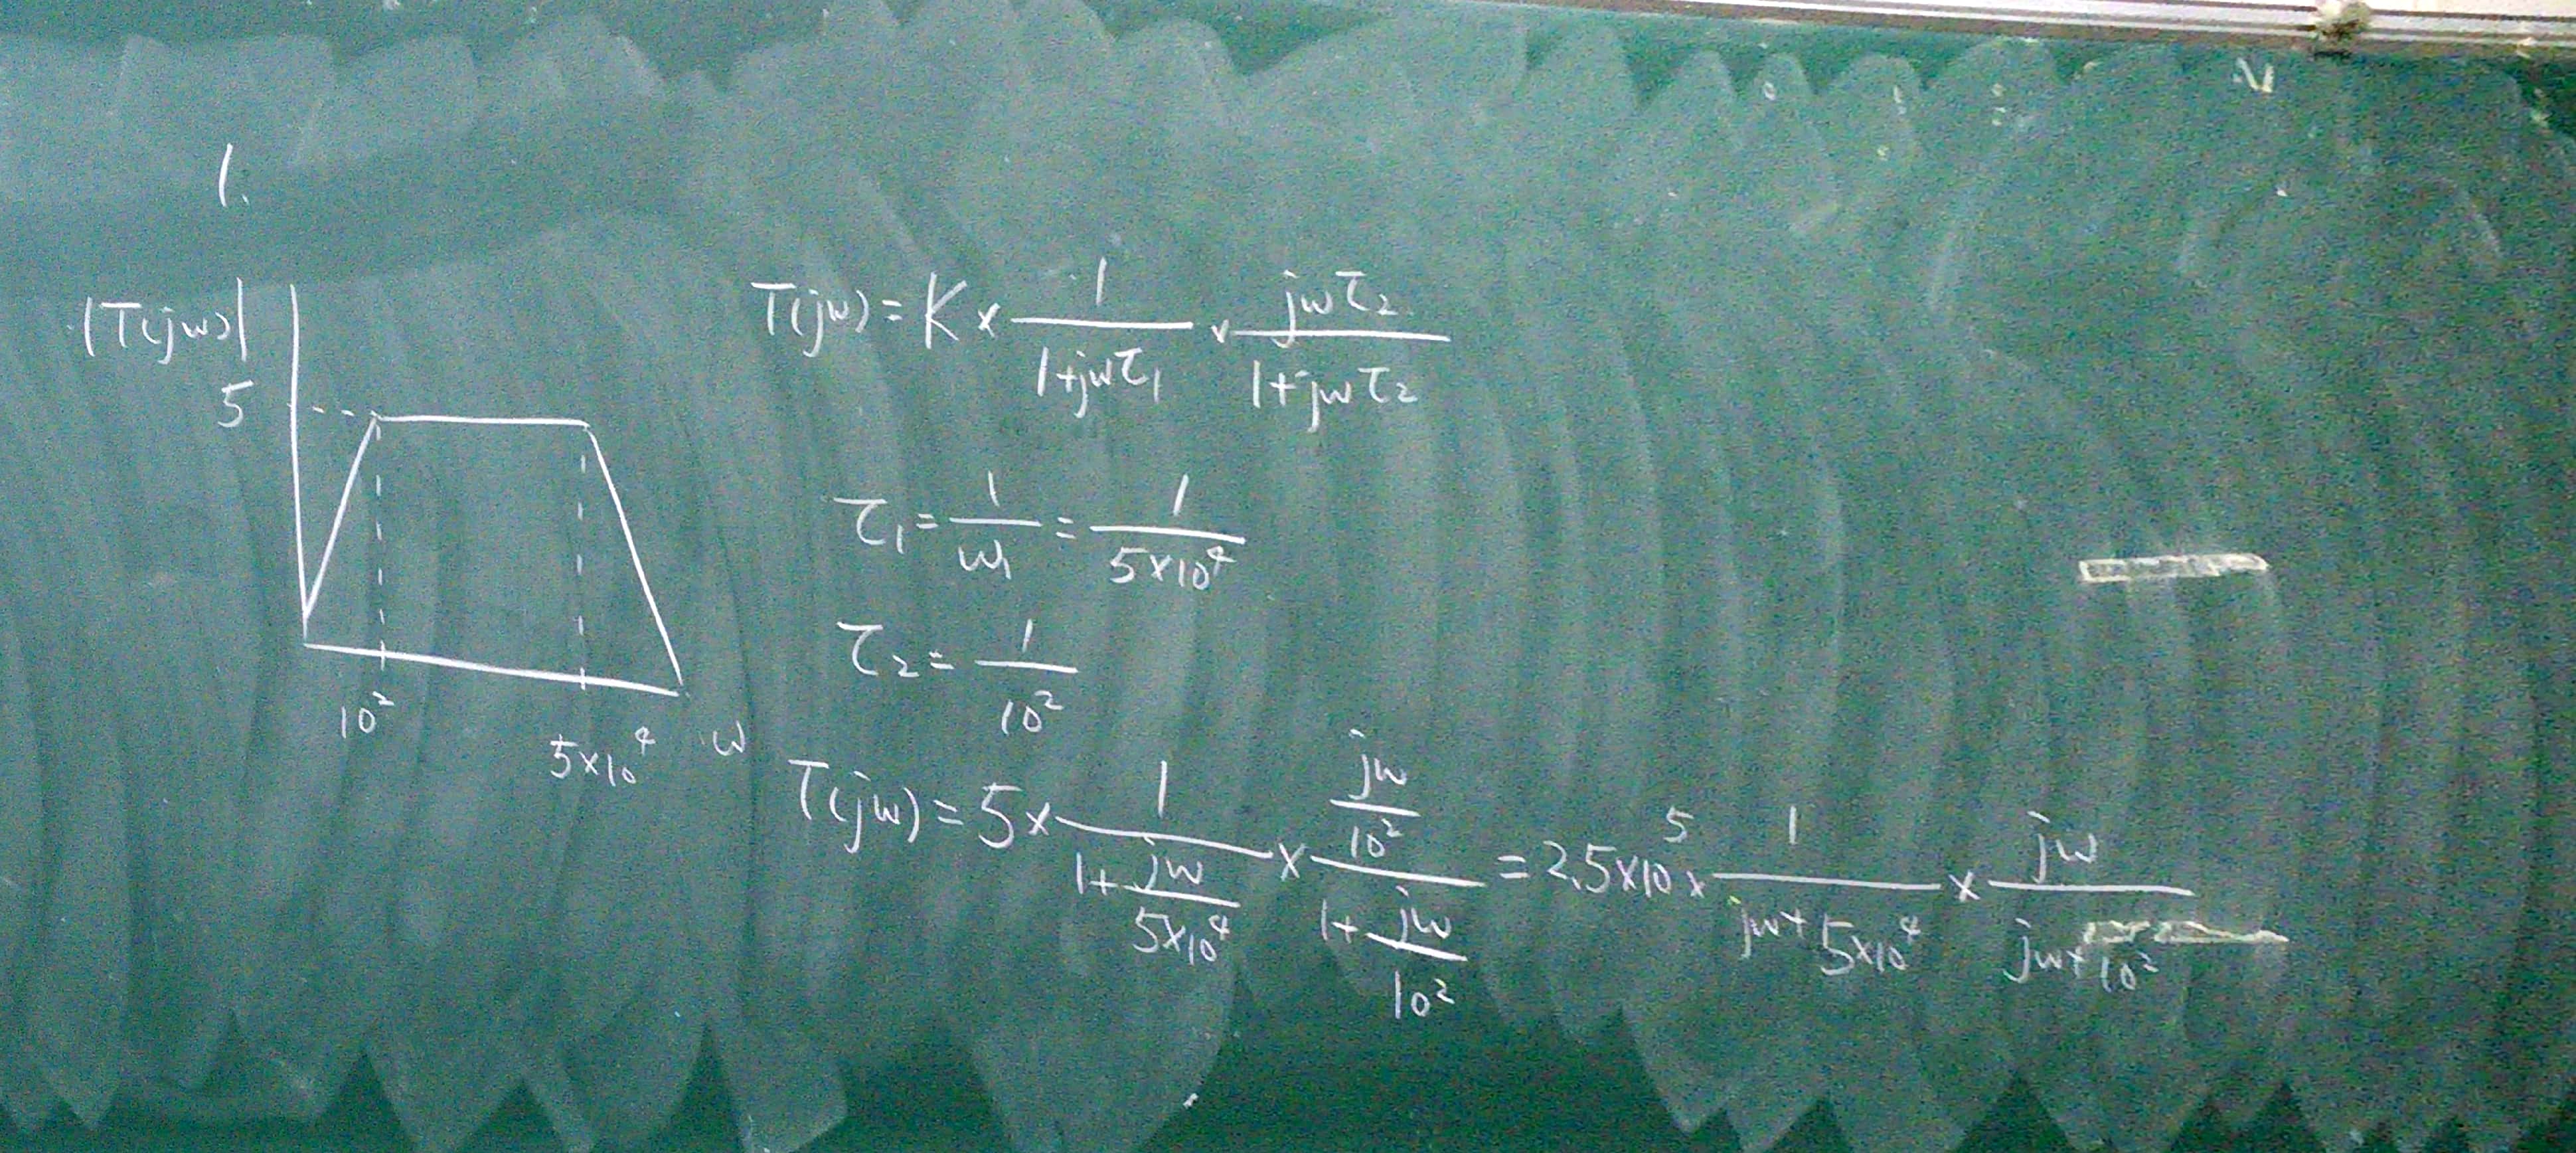 1.
|T(jw)|
5
10²
5×10⁴
w
T(jw) = K × 1/(1+jwτ₁) × jwτ₂/(1+jwτ₂)
τ₁ = 1/w₁ = 1/(5×10⁴)
τ₂ = 1/10²
T(jw) = 5 × 1/(1+jw/(5×10⁴)) × (jw/10²)/(1+jw/10²) = 2.5×10⁵ × 1/(jw+5×10⁴) × jw/(jw+10²)